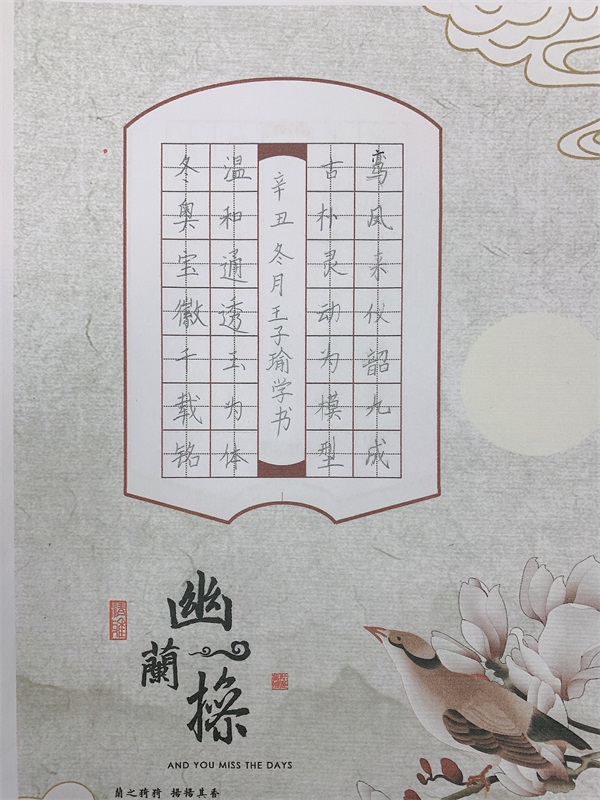 鸾凤来仪韶九成
古朴灵动为模型
辛丑冬月王子瑜学书
温和通透玉为体
冬奥宝徽千载铭
幽蘭操
AND YOU MISS THE DAYS
蘭之猗猗 揚揚其香